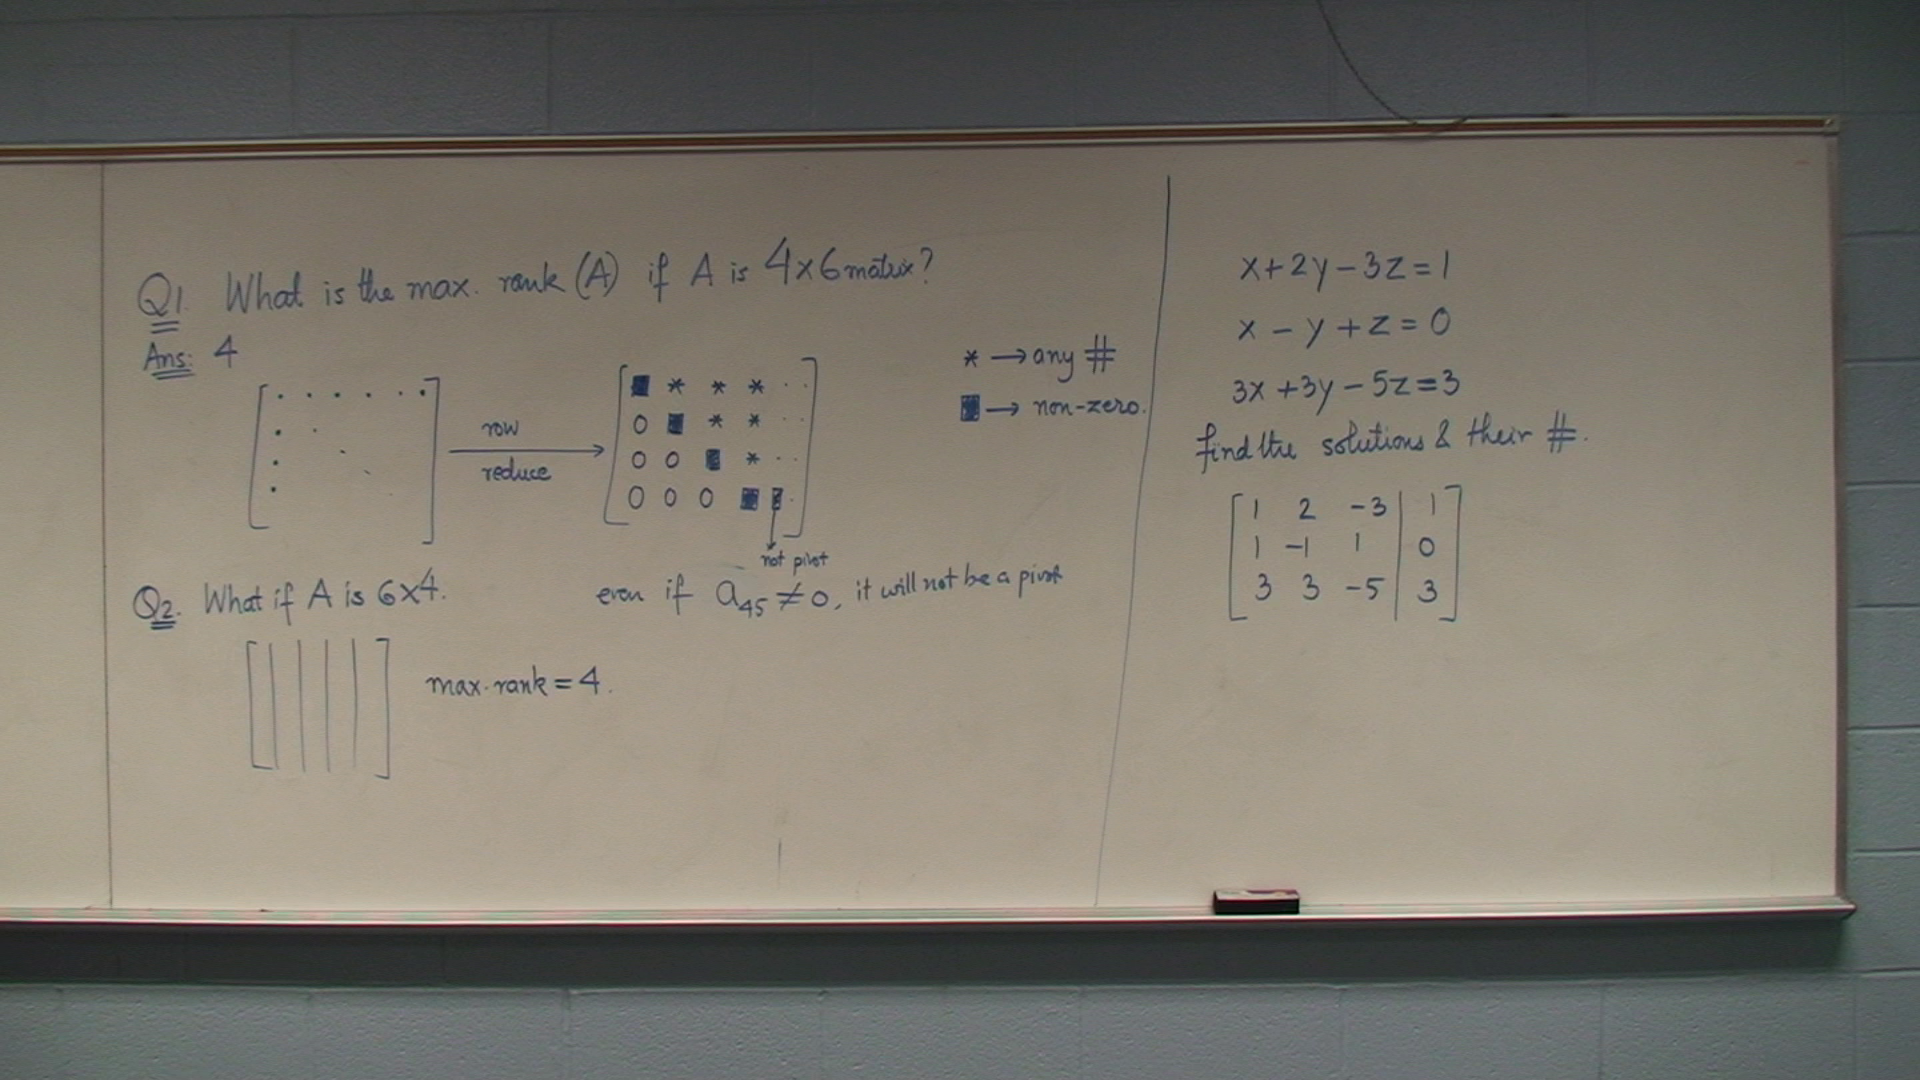 Q1. What is the max. rank (A) if A is 4x6 matrix?
Ans: 4
row
reduce
■ * * * . .
0 ■ * * . .
0 0 ■ * . .
0 0 0 ■ ■ .
not pivot
* → any #
■ → non-zero.
even if a₄₅ ≠ 0, it will not be a pivot
Q2. What if A is 6x4.
max. rank = 4.
x + 2y - 3z = 1
x - y + z = 0
3x + 3y - 5z = 3
find the solutions & their #.
1 2 -3 | 1
1 -1 1 | 0
3 3 -5 | 3